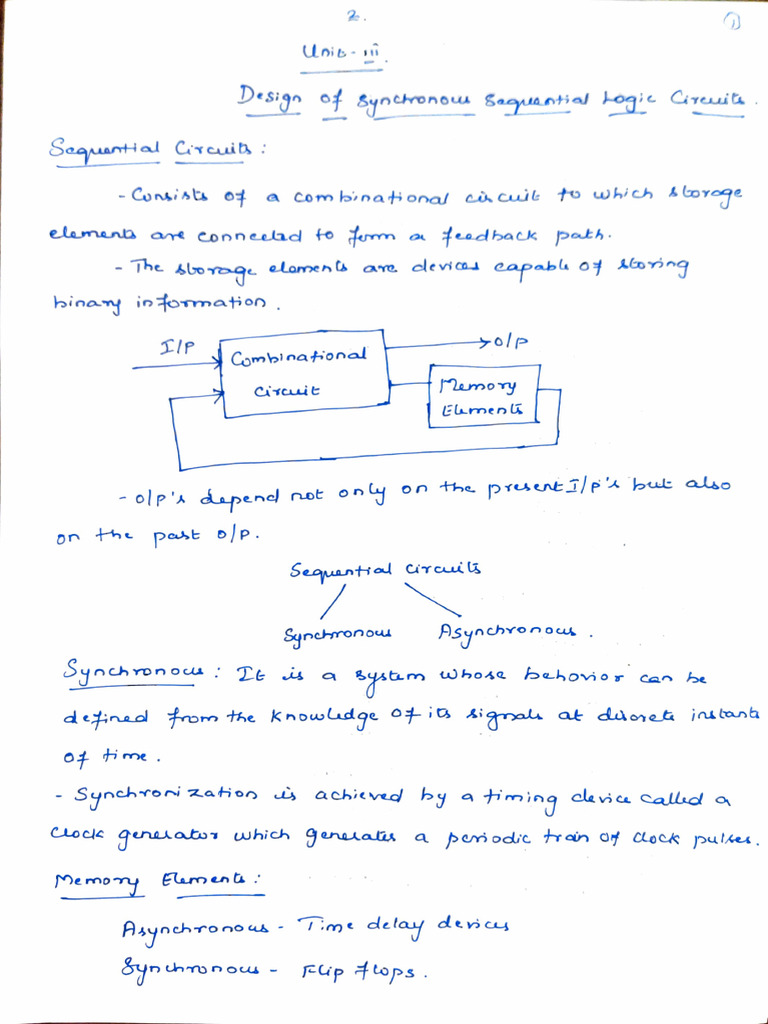 2.
1
Unit-iii.
Design of Synchronous Sequential Logic Circuits.
Sequential Circuits :
- Consists of a combinational circuit to which storage
elements are connected to form a feedback path.
- The storage elements are devices capable of storing
binary information.
I/P
Combinational
Circuit
O/P
Memory
Elements
- O/P's depend not only on the present I/P's but also
on the past O/P.
Sequential circuits
Synchronous Asynchronous.
Synchronous : It is a system whose behavior can be
defined from the knowledge of its signals at discrete instants
of time.
- Synchronization is achieved by a timing device called a
clock generator which generates a periodic train of clock pulses.
Memory Elements :
Asynchronous - Time delay devices
Synchronous - Flip flops.